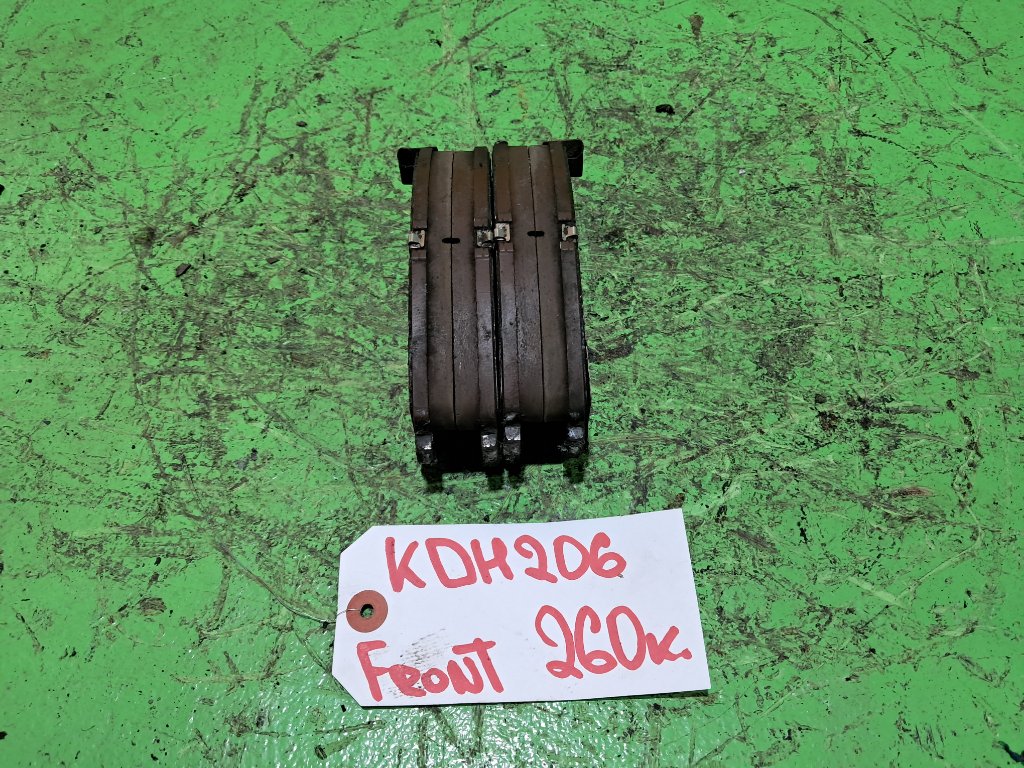 KDH206
Front 260к.